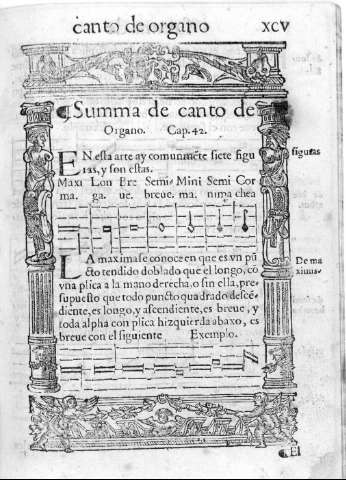 canto de organo XCV
Summa de canto de
Organo. Cap. 42.
EN esta arte ay comunmẽte siete figu
ras, y son estas.
figuras
Maxi Lon Bre Semi Mini Semi Cor
ma. ga. ue. breue. ma. nima chea
LA maxima se conoce en que es vn pũ
cto tendido doblado que el longo, cõ
De ma
xima.
vna plica a la mano derecha, o sin ella, pre-
supuesto que todo puncto quadrado descẽ-
diente, es longo, y ascendiente, es breue, y
toda alpha con plica hizquierda abaxo, es
breue con el siguiente Exemplo.
El